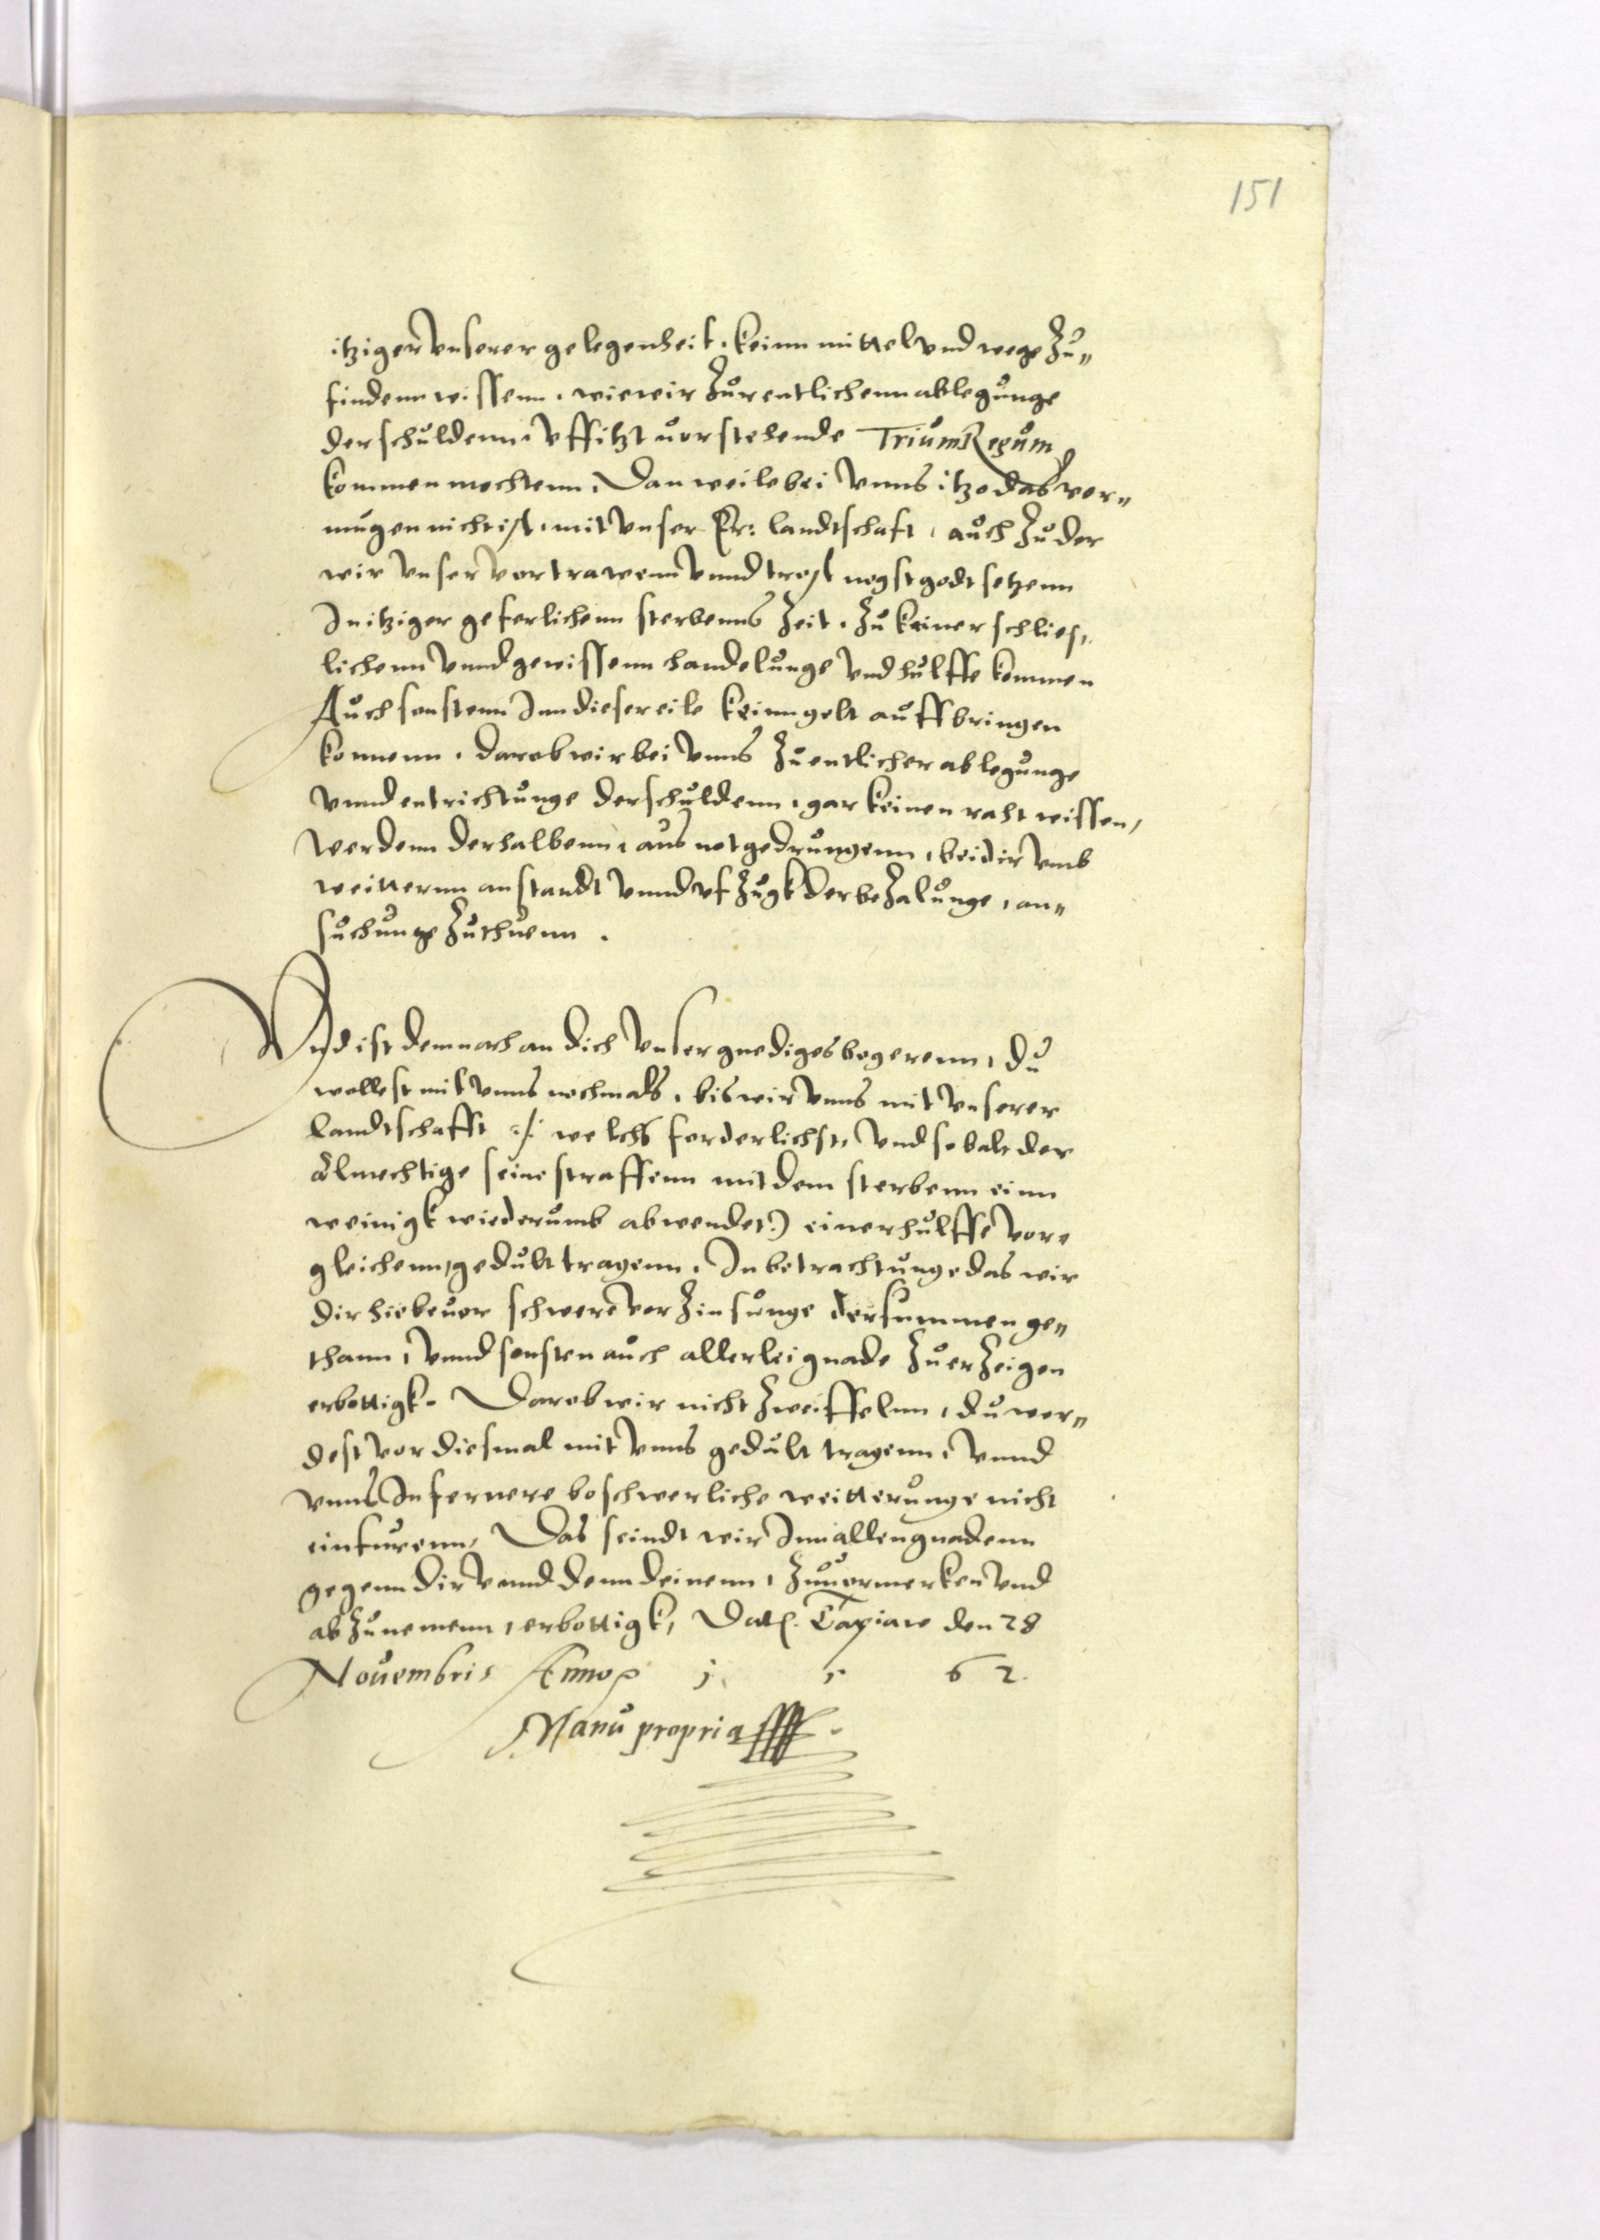 151
itziger vnserer gelegenheit, keinn mittel vnd wege zu„
findenn wissenn, wie wir zur entlichenn ablegunge
der schuldenn, vff itzt vorstehende Trium Regum
kommen mochtenn, Dan weile bei vnns itzo das ver„
mugen nicht ist, mit vnser Er: landtschaft, auch zu der
wir vnser vertrawenn vnnd trost negst godt setzenn
In itziger geferlichenn sterbenns Zeit, zu keiner schlies„
lichenn vnnd gewissenn handelunge vnd hulffe kommen
Auch sonstenn Inn dieser eile keinn gelt auffbringen
konnenn, darob wir bei vnns zu entlicher ablegunge
vnnd entrichtunge der schuldenn, gar keinen raht wissen,
werdenn derhalbenn, aus not gedrungenn, bei dir vmb
weitternn anstandt vnnd vfzugk der bezalunge, an„
suchunge zu thuenn.
Vnd ist demnach an dich vnser gnediges begerenn, du
wollest mit vnns nochmals, bis wir vnns mit vnserer
landtschafft :/: welchs forderlichst, vnd so balt der
Almechtige seine straffenn mit dem sterbenn einn
weinigk wiederumb abwendet:) einer hulffe vor„
gleichenn, gedult tragenn, In betrachtunge das wir
dir hiebeuor schwere vorzinsunge der summen ge„
thann, vnnd sonsten auch allerlei gnade zu erzeigen
erbottigk. Darob wir nicht zweiffelnn, du wer„
dest vor diesmal mit vnns gedult tragenn, vnnd
vnns In fernere beschwerliche weitterunge nicht
einfurenn, Das seindt wir Inn allen gnadenn
gegenn dir vnnd denn deinenn, zuuormerken vnd
abzunemenn, erbottigk, Dat. Tapiaw den 28
Nouembris Anno 1 5 62.
Manu propria